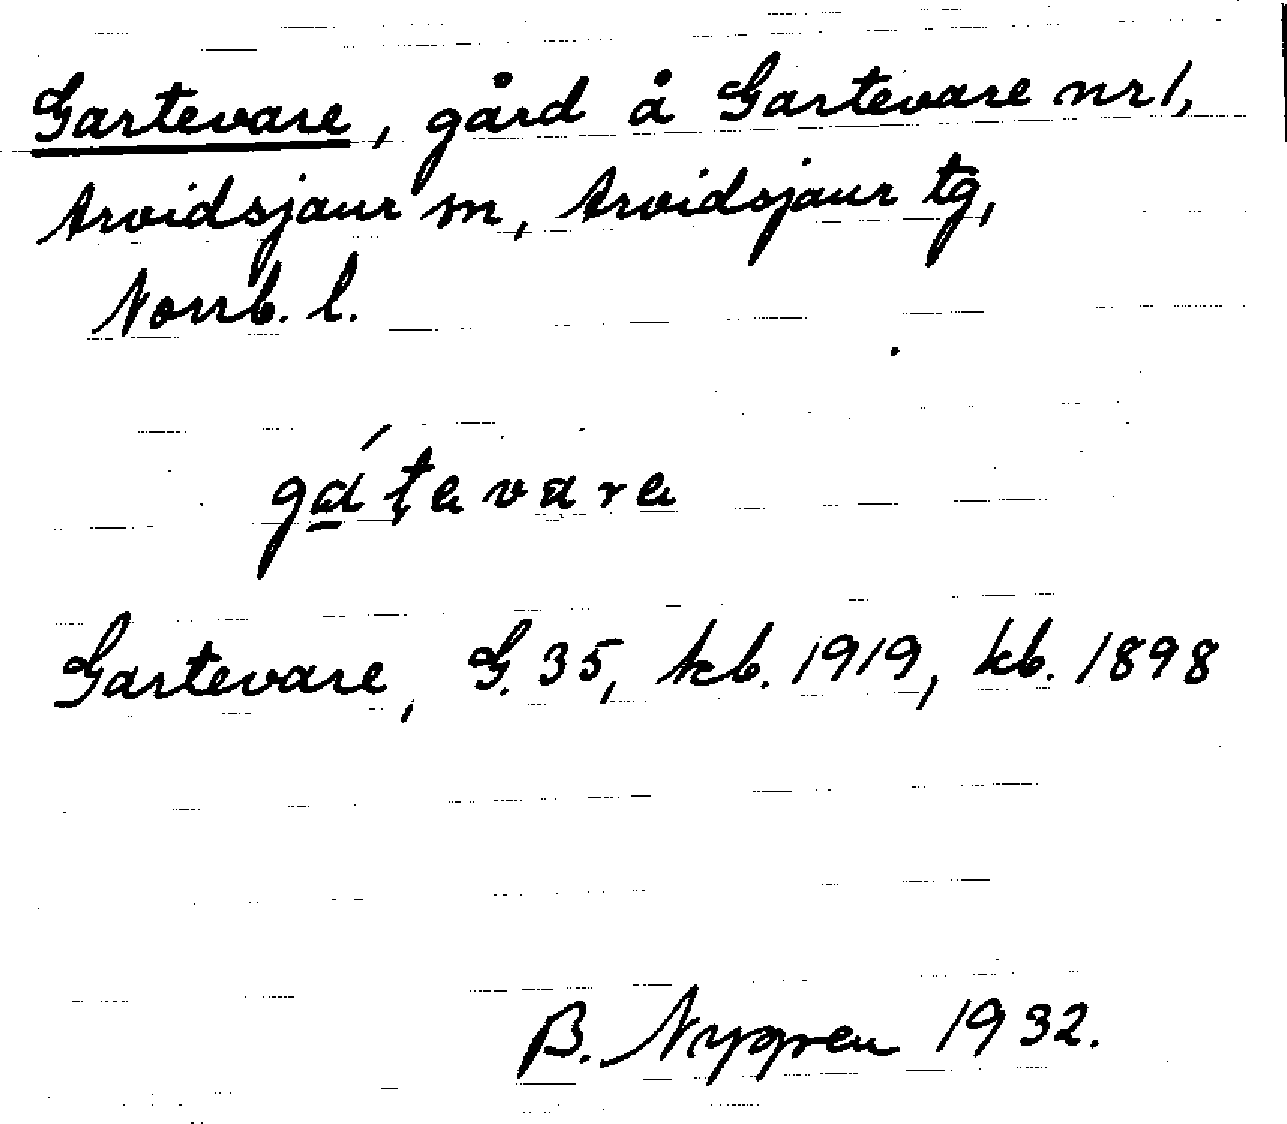 Gartevare, gård å Gartevare nr 1,
Arvidsjaur sn, Arvidsjaur tg,
Norrb. l.
gátevare
Gartevare, G. 35, kb. 1919, kb. 1898
B. Nygren 1932.